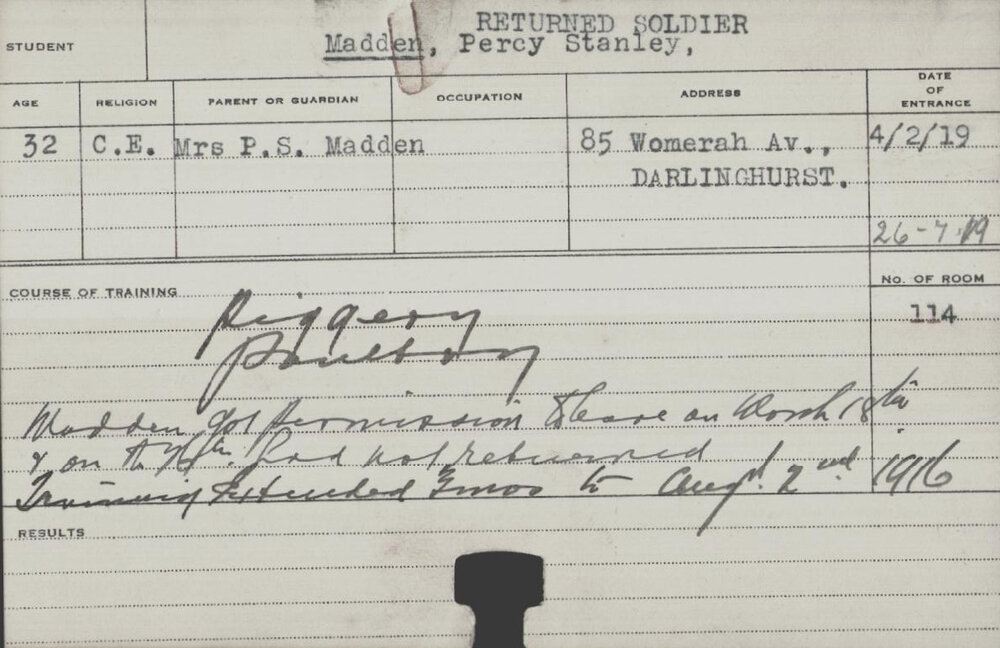 STUDENT
RETURNED SOLDIER
Madden, Percy Stanley,
AGE RELIGION PARENT OR GUARDIAN OCCUPATION ADDRESS DATE OF ENTRANCE
32 C.E. Mrs P.S. Madden 85 Womerah Av., 4/2/19
DARLINGHURST.
26-7-19
COURSE OF TRAINING No. OF ROOM
Piggery 114
Poultry
Madden got permission to leave on March 18th
& on the had not returned
Training Extended 3mos to Augt. 2nd 1916
RESULTS